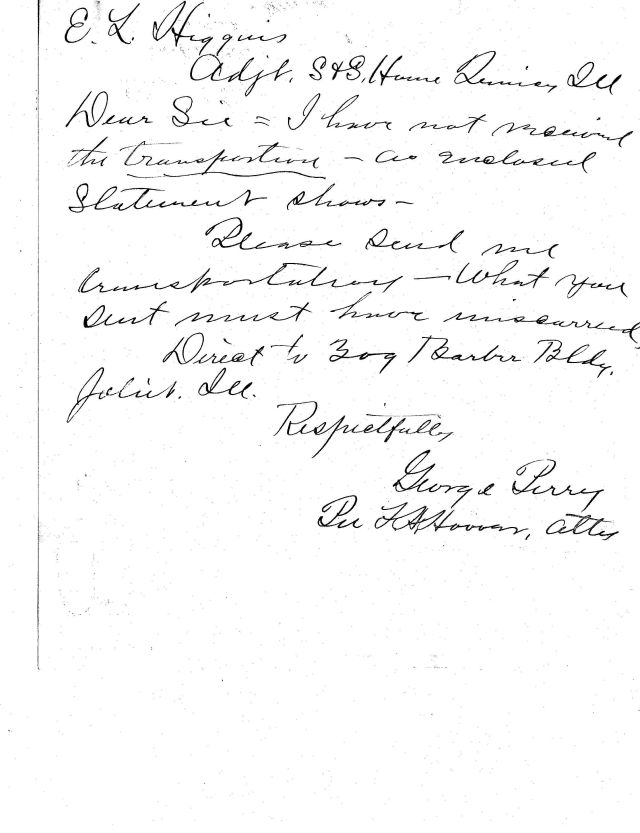 E. L. Higgins
Adjt. S&S, Home Quincy, Ill
Dear Sir = I have not received
the transportion - as enclosed
Statement shows -
Please send me
transportation - What you
sent must have miscarried,
Direct to 309 Barber Bldg.
Joliet. Ill.
Respectfully
George Perry
Per Hoover, atty